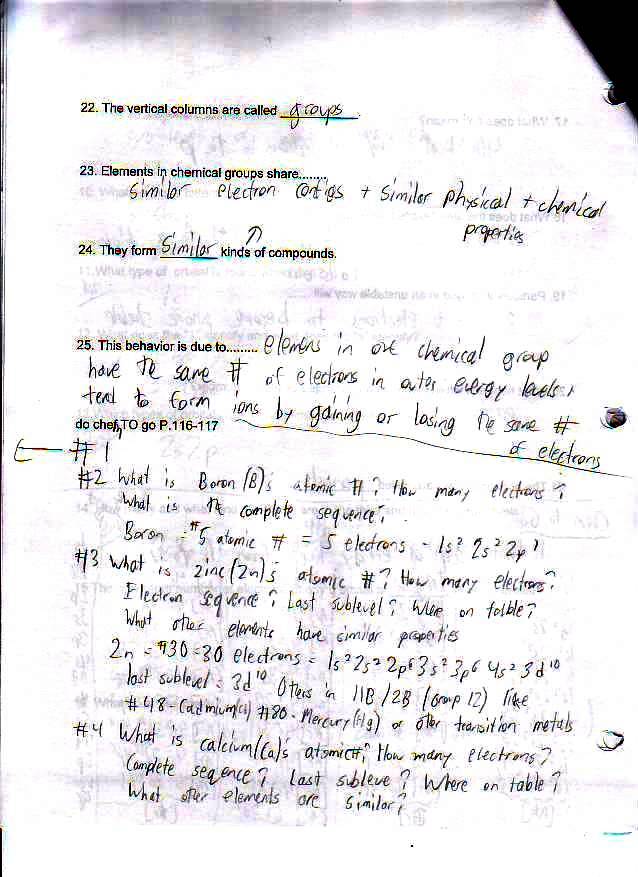 22. The vertical columns are called groups.
23. Elements in chemical groups share........
Similar electron configs + similar physical + chemical
properties
24. They form Similar kinds of compounds.
25. This behavior is due to......... elemens in one chemical group
have the same # of electrons in outer energy levels,
tend to form ions by gaining or losing the same #
of electrons
do chef TO go P.116-117
#1
#2 What is Boron (B)'s atomic #? How many electrons?
What is the complete sequence?
Boron = #5 atomic # = 5 electrons - 1s² 2s² 2p¹
#3 What is zinc (Zn)'s atomic #? How many electrons?
Electron sequence? Last sublevel? Where on table?
What other elements have similar properties
Zn = #30 = 30 electrons = 1s² 2s² 2p⁶ 3s² 3p⁶ 4s² 3d¹⁰
last sublevel = 3d¹⁰ Others in IIB/2B (Group 12) like
#48 - Cadmium(Cd) #80 - Mercury (Hg) or other transition metals
#4 What is calcium (Ca)'s atomic #? How many electrons?
Complete sequence? Last subleve? Where on table?
What other elements are similar?